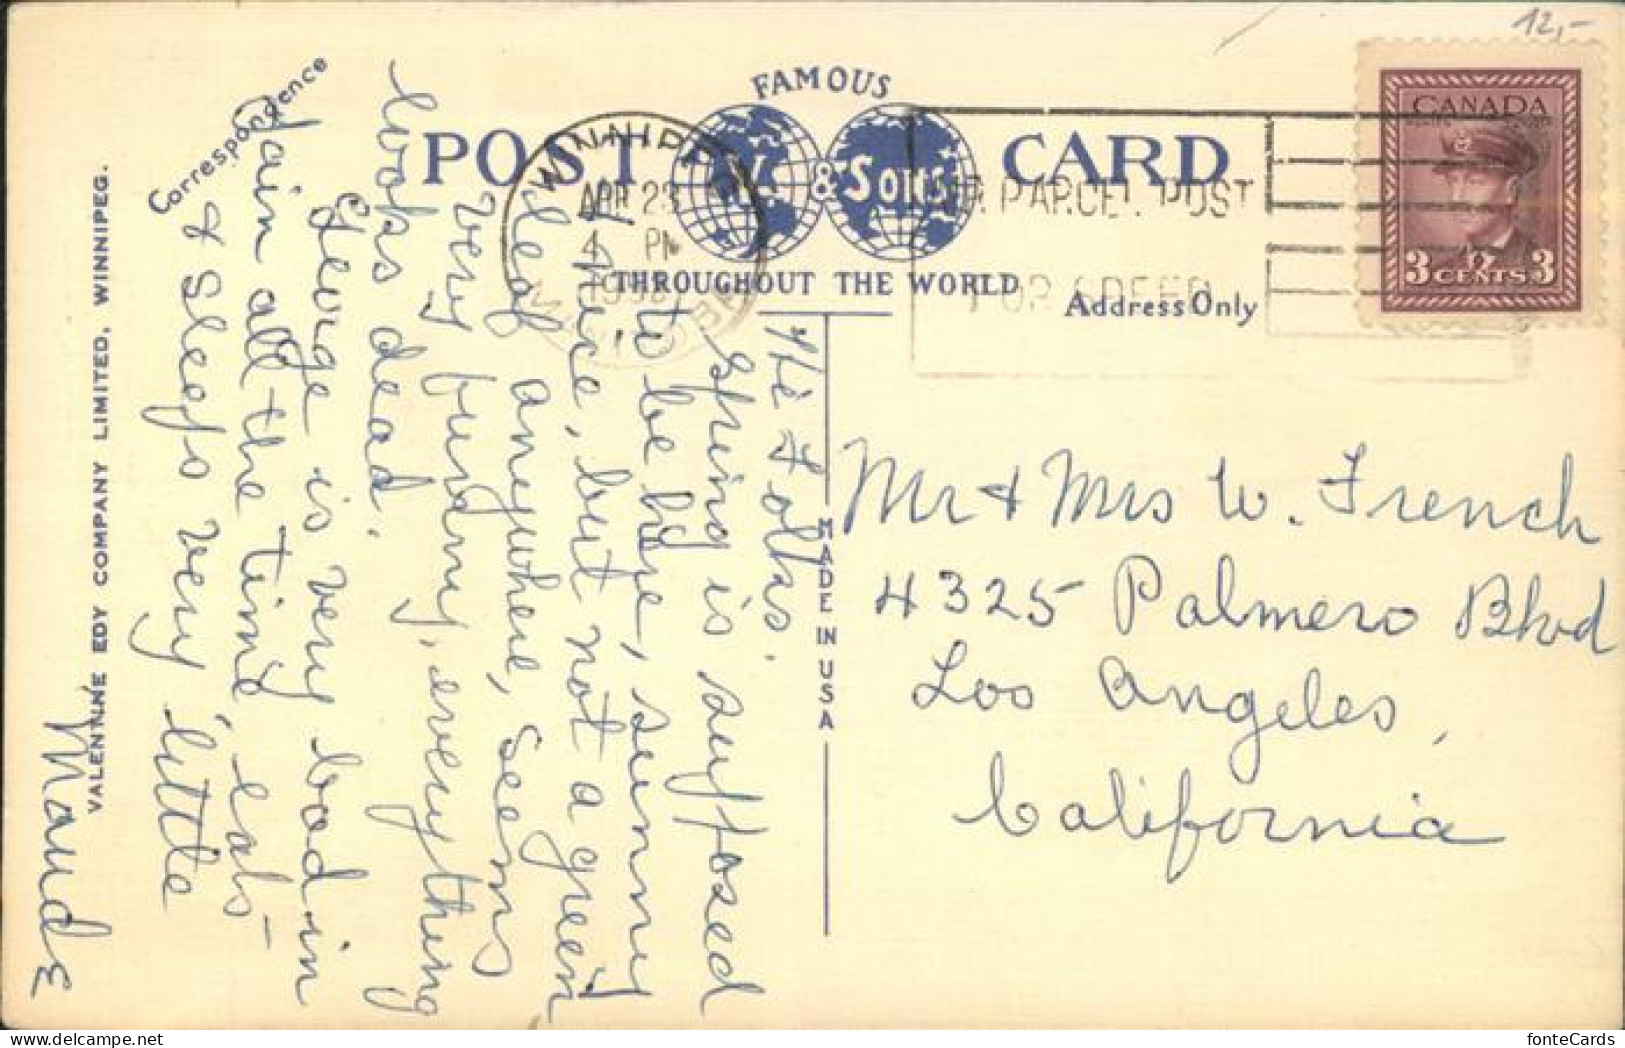 12,-
FAMOUS
POST CARD
V. & Sons
THROUGHOUT THE WORLD
Address Only
Correspondence
WINNIPEG
APR 23
4 PM
AIR PARCEL POST
CANADA
3 CENTS 3
Hi Folks.
Spring is supposed
to be here, sunny
& nice, but not a green
leaf anywhere, seems
very funny, everything
looks dead.
George is very bad in
pain all the time, eats
& sleeps very little
Maude
Mr & Mrs W. French
4325 Palmero Blvd
Los Angeles,
California
MADE IN USA
VALENTINE EDY COMPANY LIMITED, WINNIPEG.
fonteCards